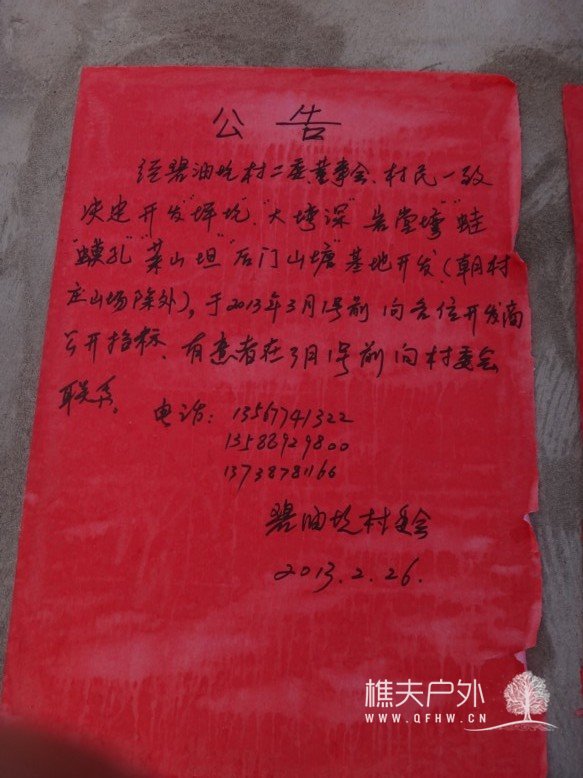 公告
经碧油坑村二委董事会、村民一致
决定开发"坪坑""大塆深""岩堂塆""蛙
蟆孔""菜山坦""后门山塘"基地开发（朝村
庄山场除外），于2013年3月1号前向各位开发商
公开招标、有意者在3月1号前向村委会
联系。电话：13567741322
13588929800
13738781166
碧油坑村委会
2013.2.26.
樵夫户外
WWW.QFHW.CN